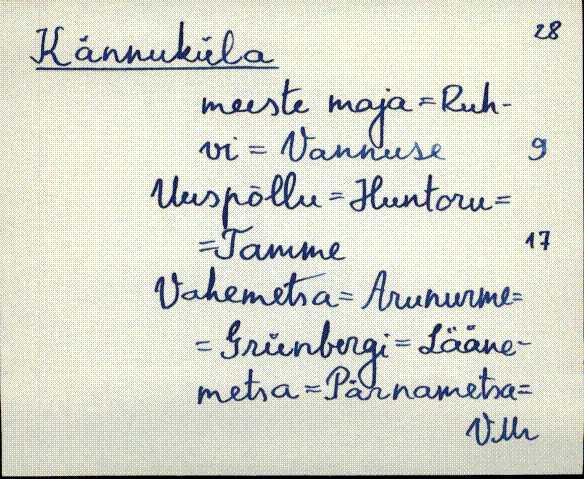 28
Kännuküla
meeste maja = Ruh-
vi = Vannuse 9
Uuspõllu = Huntoru =
= Tamme 17
Vahemetsa = Arunurme =
= Grünbergi = Lääne-
metsa = Pärnametsa =
VMr